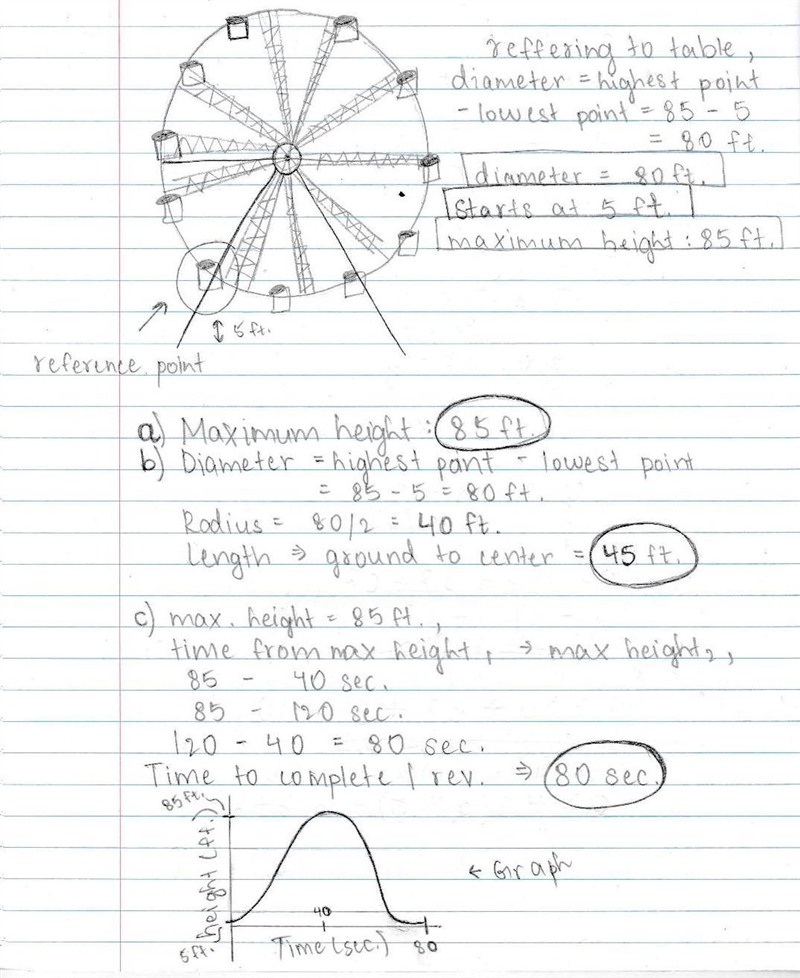 reffering to table,
diameter = highest point
- lowest point = 85 - 5
= 80 ft.
diameter = 80 ft.
starts at 5 ft.
maximum height : 85 ft.
5 ft.
reference point
a) Maximum height : 85 ft.
b) Diameter = highest point - lowest point
= 85 - 5 = 80 ft.
Radius = 80/2 = 40 ft.
Length ⇒ ground to center = 45 ft.
c) max. height = 85 ft.,
time from max height₁ ⇒ max height₂,
85 - 40 sec.
85 - 120 sec.
120 - 40 = 80 sec.
Time to complete 1 rev. ⇒ 80 sec.
85 ft.
height (ft.)
← Graph
40
5 ft.
Time (sec.)
80